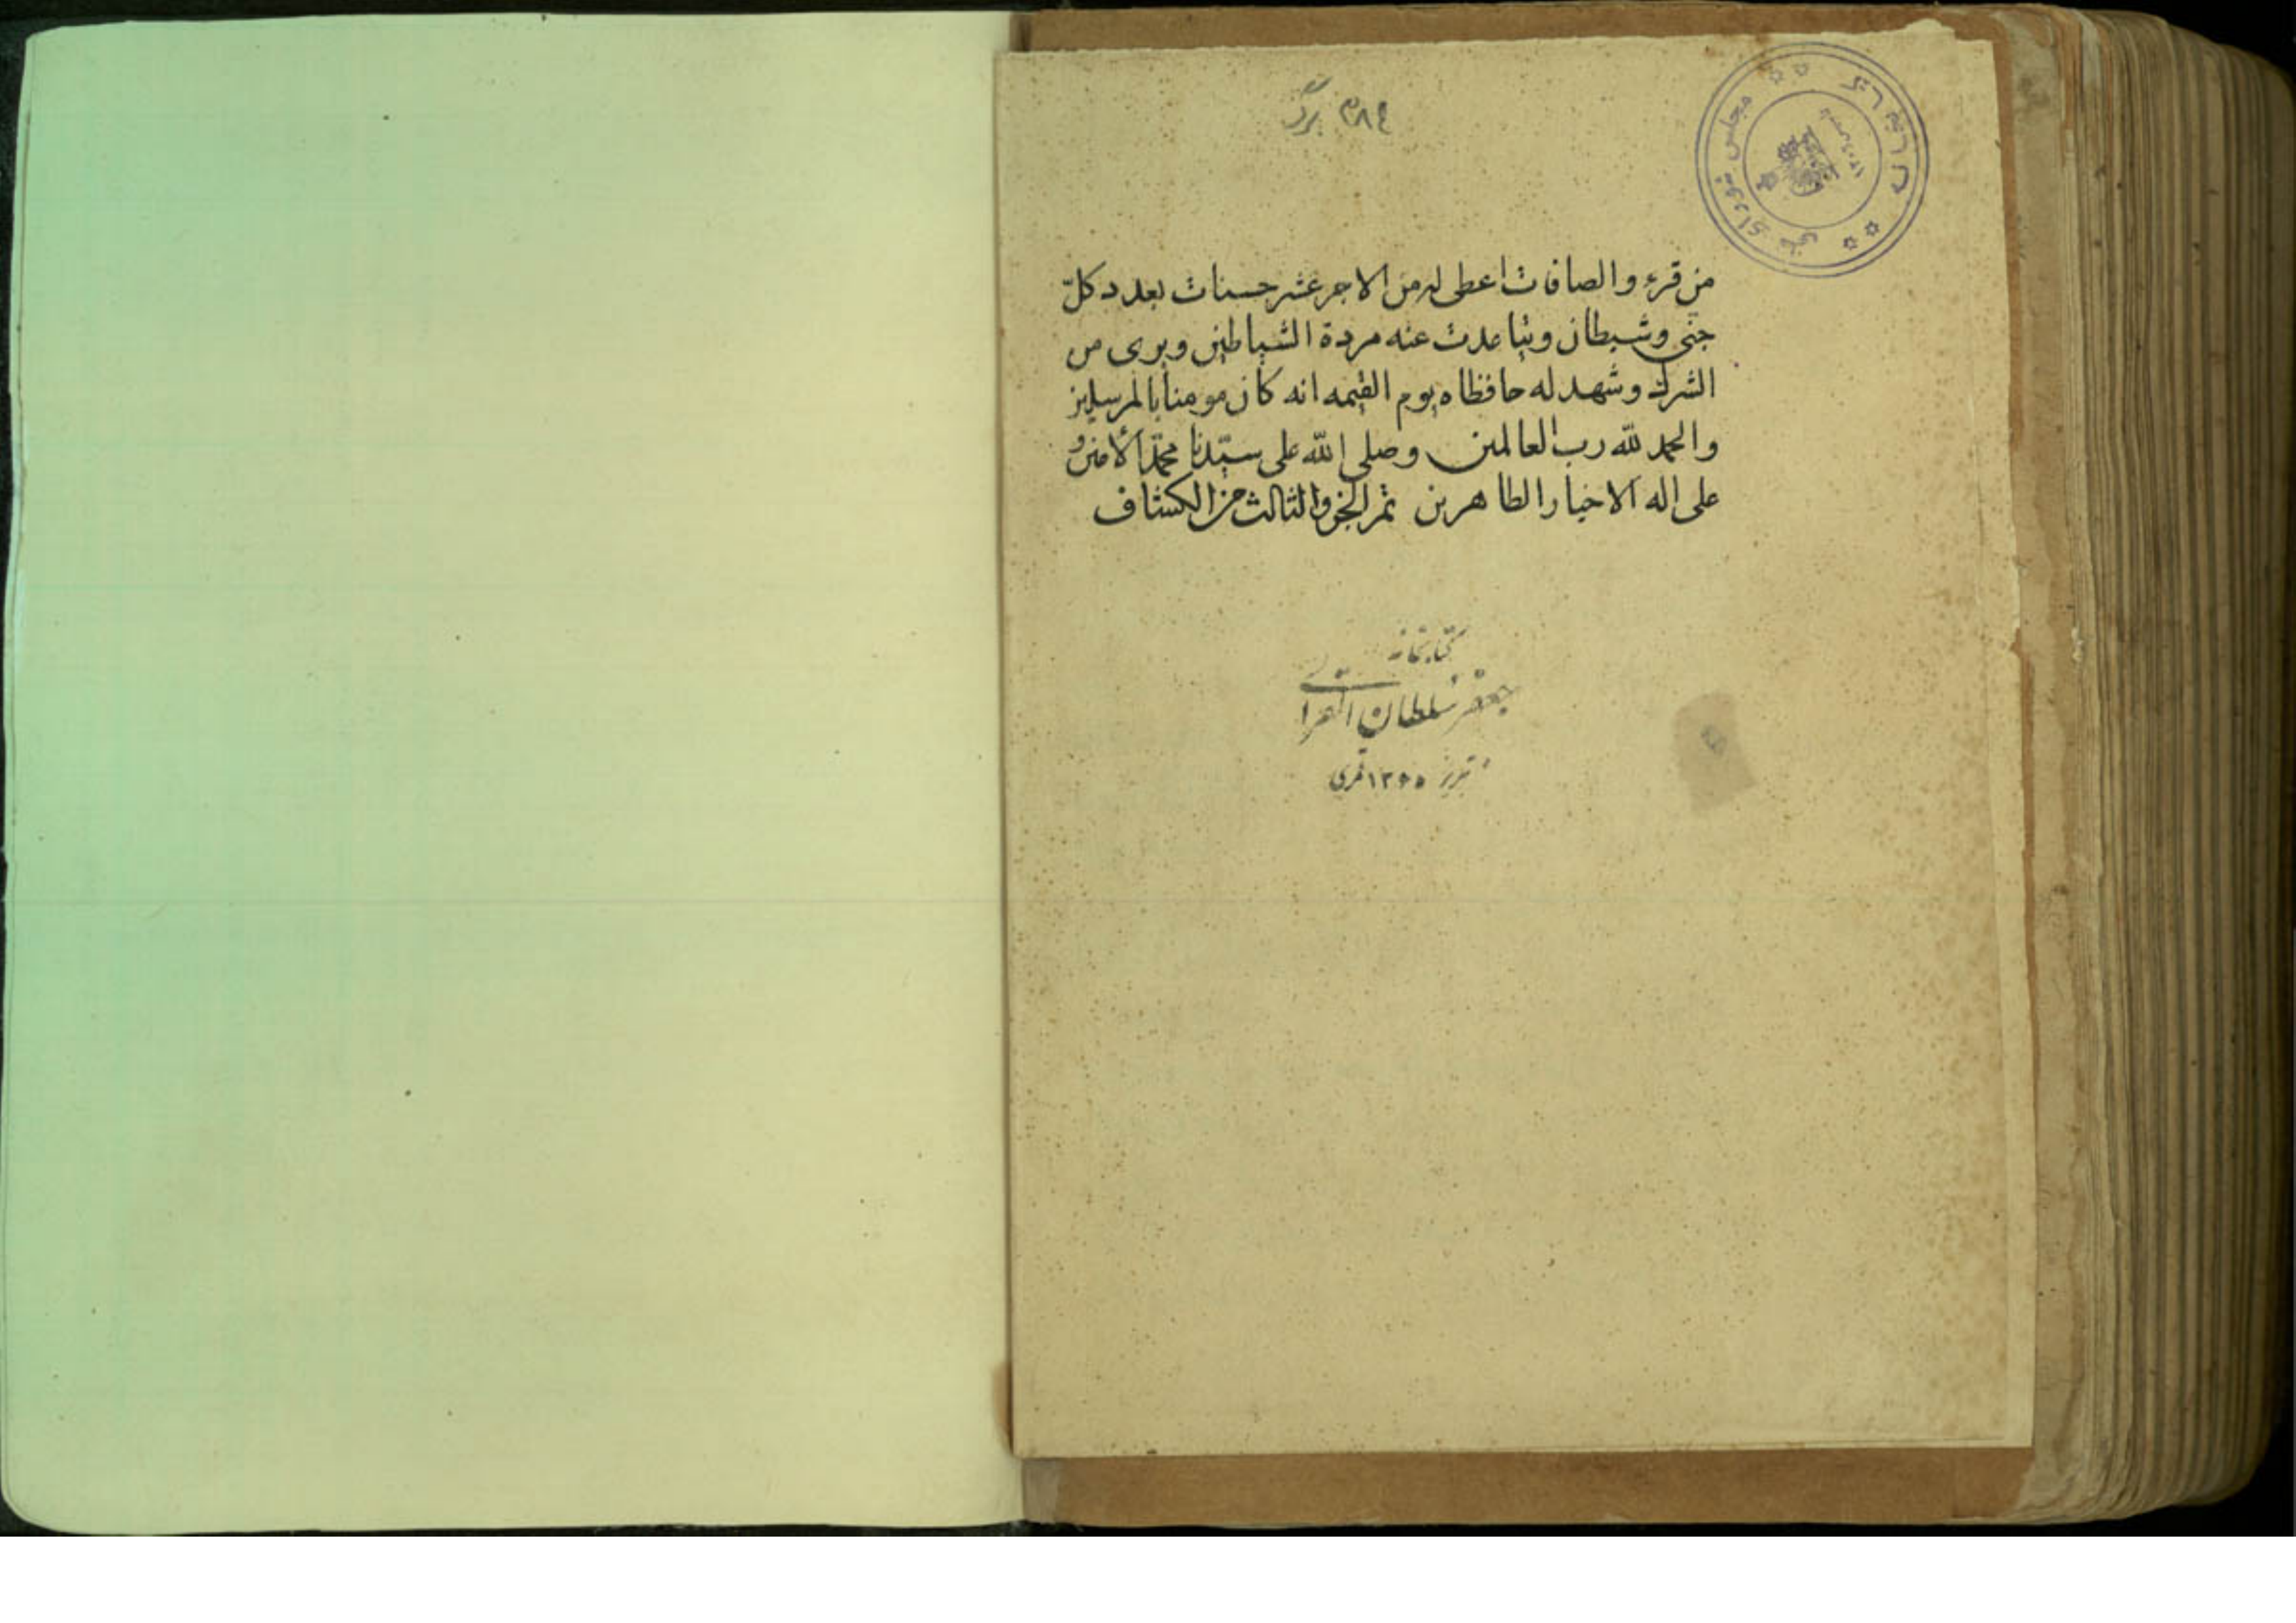 ٢٨٤ برگ
مجلس شورای ملی
کتابخانه
من قرء والصافات اعطی له من الاجر عشر حسنات بعدد كلّ
جنی وشیطان وتباعدت عنه مردة الشیاطین وبری من
الشرك وشهد له حافظاه یوم القیمه انه كان مومنا بالمرسلین
والحمد لله رب العالمین وصلی الله علی سیّدنا محمّد الأمین و
علی اله الاخیار الطاهرین تم الجزو الثالث من الكشاف
کتابخانه
جعفر سلطان القرائی
تبریز ۱۳۶۵ قمری